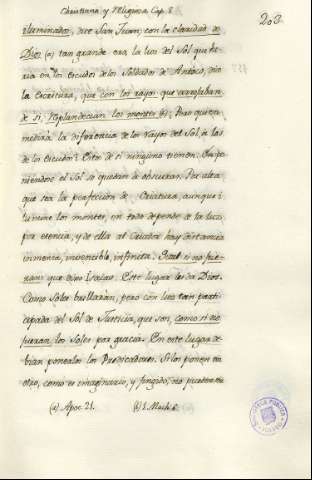 Christiana y Religiosa Cap. 8.
203
iluminados, dice San Juan; con la claridad de
Dios (a) tan grande era la luz del Sol que he-
ria en los escudos de los Soldados de Antioco, dice
la escritura, que con los rayos que arrojaban
de si, resplandecian los montes (b). Pero quien
medirá la diferencia de los rayos del Sol, à los
de los escudos? Estos de si ninguno tienen. Inspo-
niendose el Sol se quedan à obscuras. Por alta
que sea la perfeccion de Criatura, aunque i-
lumine los montes, en todo depende de la luz
por esencia, y de ella al Criador hay distancia
inmensa, invencible, infinita. si no fue-
ran que dixo Isaias. Este lugar es de Dios.
Como Soles brillarán, pero con luz tan parti-
cipada del Sol de Justicia, que son, como si no
fueran, los Soles por gracia. En este lugar de-
bian ponerlos los Predicadores. Si los ponen en
otro, como es imaginario, y fingido, no pueden
(a) Apoc. 21. (b) 1. Mach. 6.
BIBLIOTECA PUBLICA